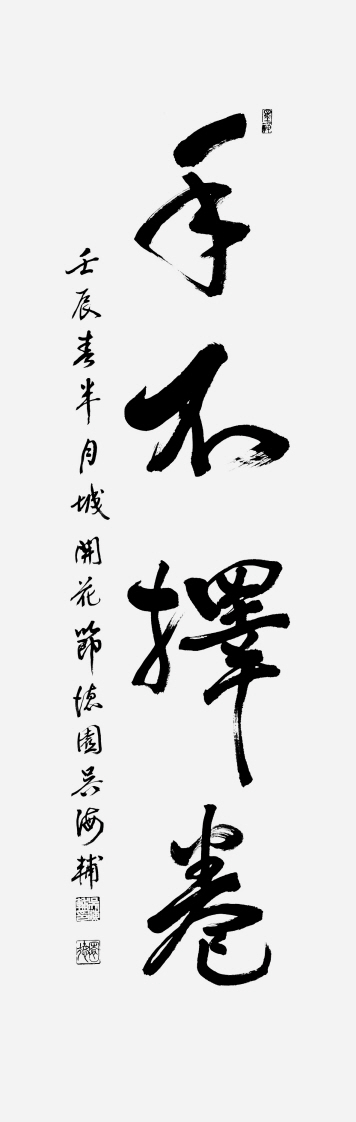 手不擇卷
壬辰春半月城開花節德園吳海輔